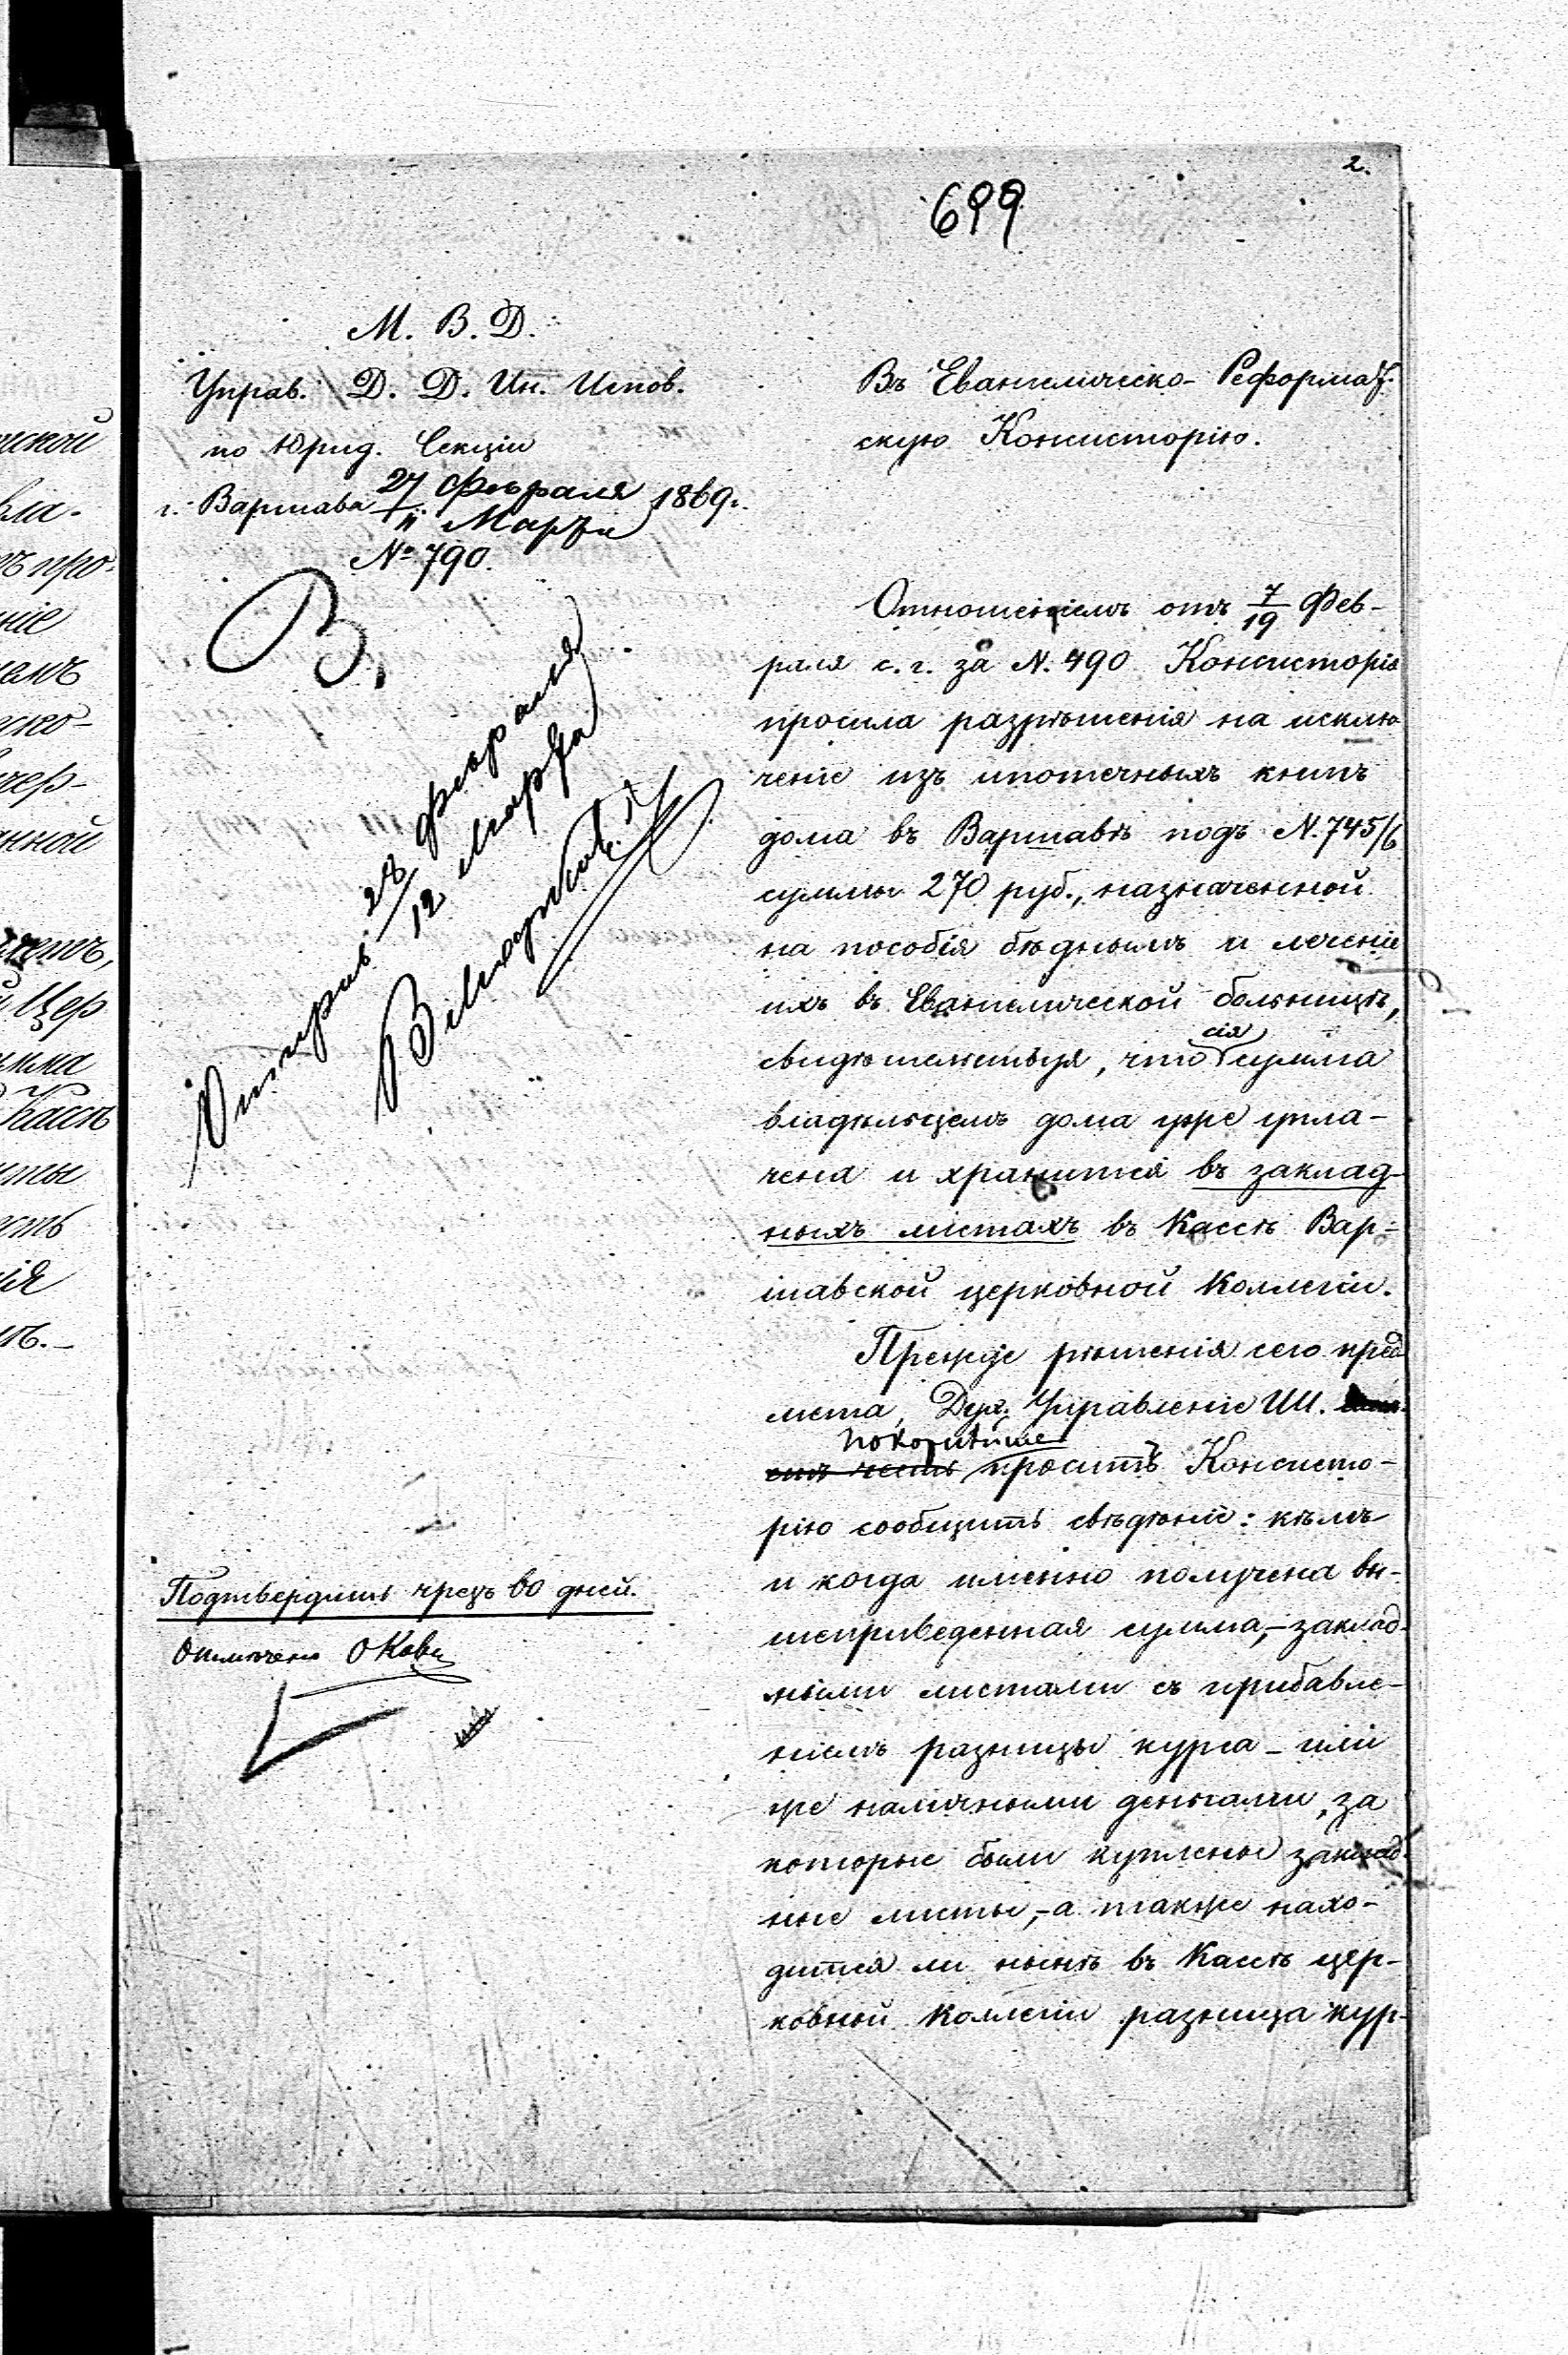 2.
699
М. В. Д.
Управ. Д. Д. Ин. Испов.
по Юрид. Секціи
г. Варшава 27 Февраля / 11 Марта 1869 г.
№ 790.
В.
28 февраля
12 Марта
Подтвердить чрезъ 60 дней.
Въ Евангелическо-Реформат-
скую Консисторію.
Отношеніемъ отъ 7/19 Фев-
раля с. г. за N. 490 Консисторія
просила разрѣшенія на исклю
ченіе изъ ипотечныхъ книгъ
дома въ Варшавѣ подъ N. 745/6
суммы 270 руб., назначенной
на пособія бѣднымъ и леченіе
ихъ въ Евангелической больницѣ,
свидѣтельствуя, что сія сумма
владѣльцемъ дома уже упла-
чена и хранится въ заклад-
ныхъ листахъ въ Кассѣ Вар-
шавской церковной Коллегіи.
Прежде рѣшенія сего пред
мета, Дух. Управленіе ИИ.
покорнѣйше
проситъ Консисто-
рію сообщить свѣдѣніе: кѣмъ
и когда именно получена вы-
шеприведенная сумма,- заклад-
ными листами съ прибавле-
ніемъ разницы курса - или
же наличными деньгами, за
которые были куплены заклад-
ные листы,- а также нахо-
дится ли нынѣ въ Кассѣ цер-
ковной Коллегіи разница кур-
ской
вла-
про-
ніе
ско-
чер-
нной
Цер
Кассѣ